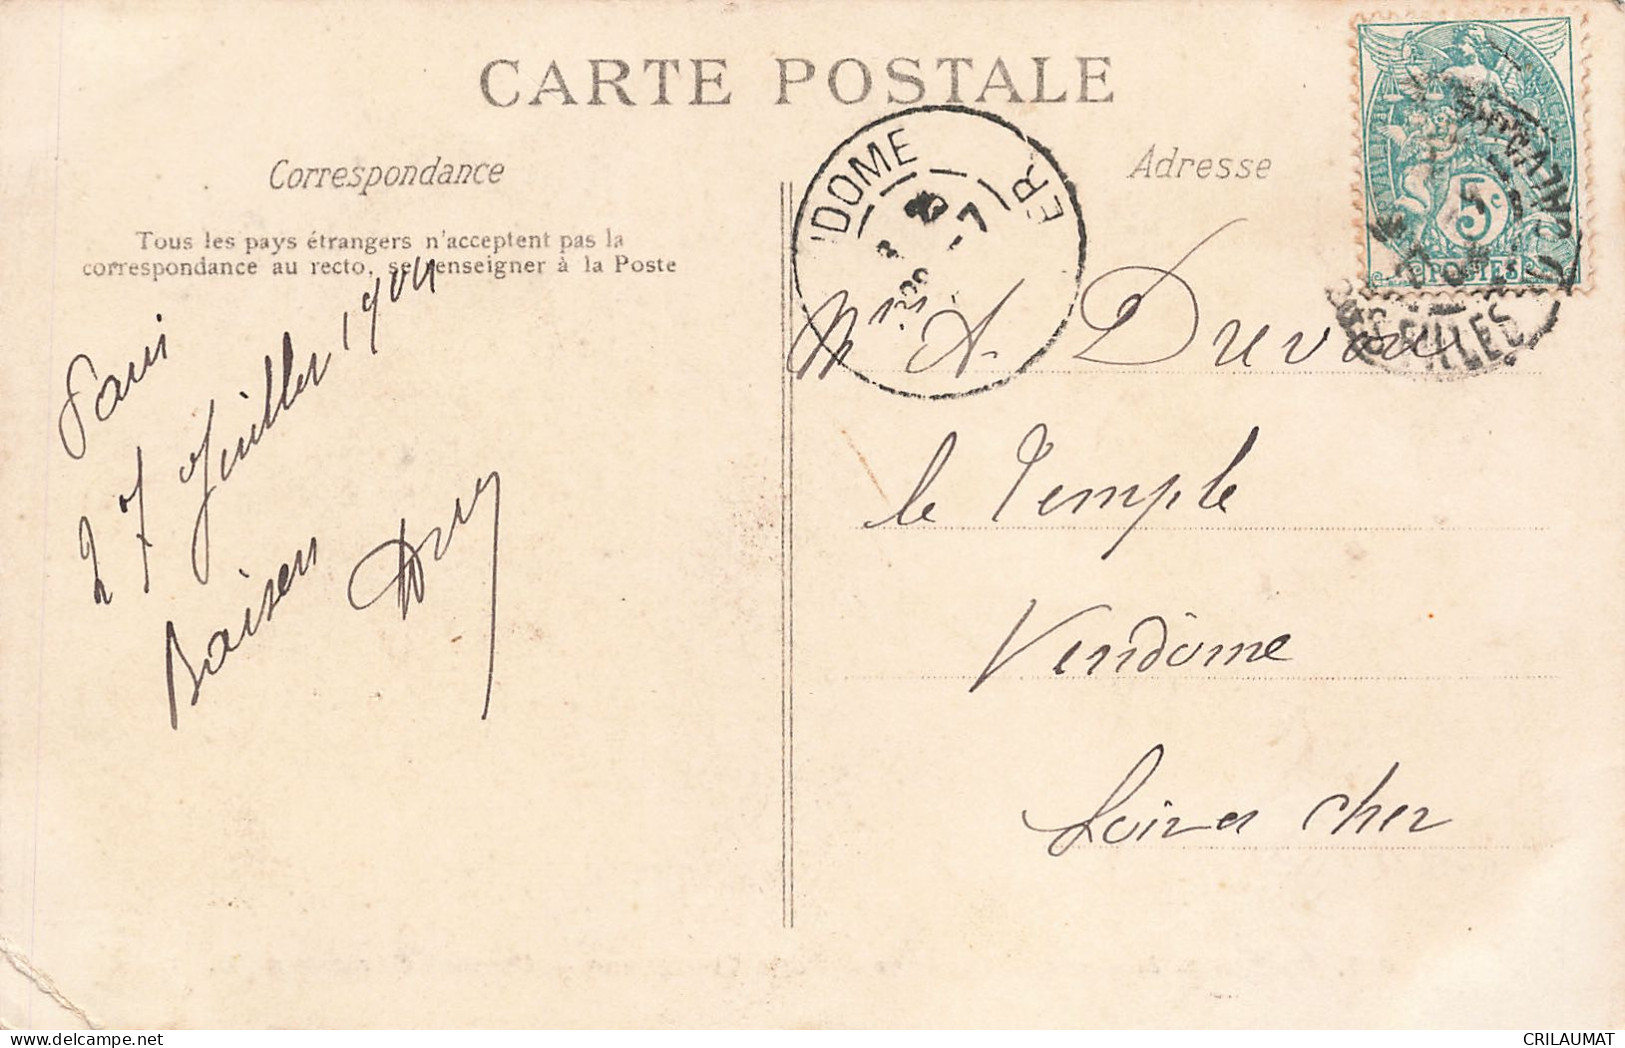 CARTE POSTALE
Correspondance
Adresse
Tous les pays étrangers n'acceptent pas la
correspondance au recto, se renseigner à la Poste
Paris
27 Juillet 1904
Baisers
DOME
ER
-7
5c
POSTES
A.
le Temple
Vendôme
Loir et Cher
CRILAUMAT